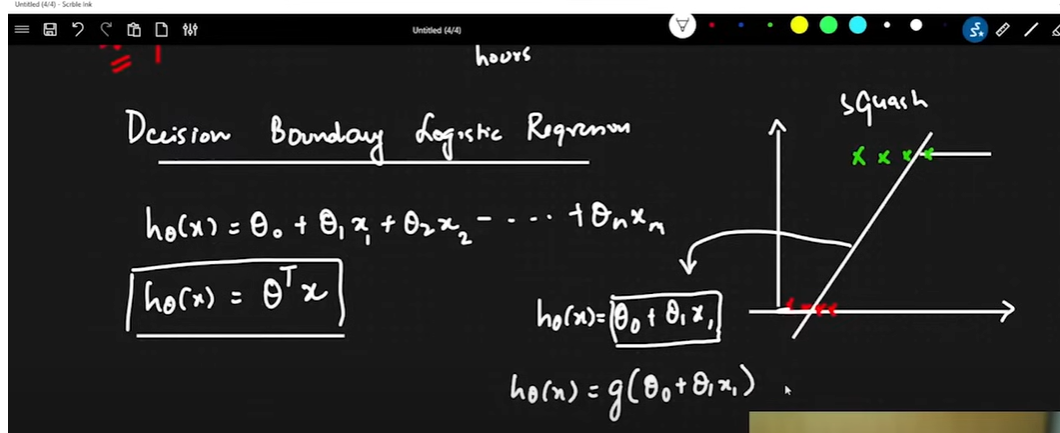 Untitled (4/4) - Scrble Ink
Untitled (4/4)
hours
squash
Decision Boundary Logistic Regression
hθ(x) = θ₀ + θ₁x₁ + θ₂x₂ - - ... + θₙxₙ
hθ(x) = θᵀx
hθ(x) = θ₀ + θ₁x₁
hθ(x) = g(θ₀ + θ₁x₁)